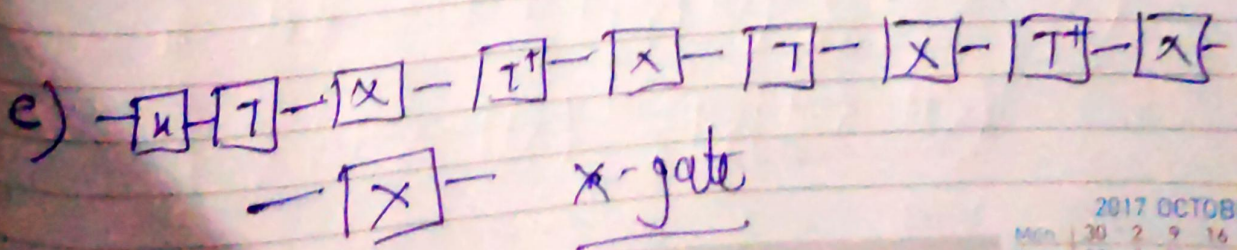 e) H T X T† X T X T† X
X x-gate
2017 OCTOB
Mon 30 2 9 16